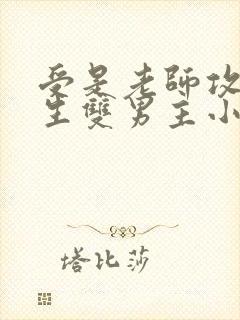 受是老師攻
生雙男主小
塔比莎